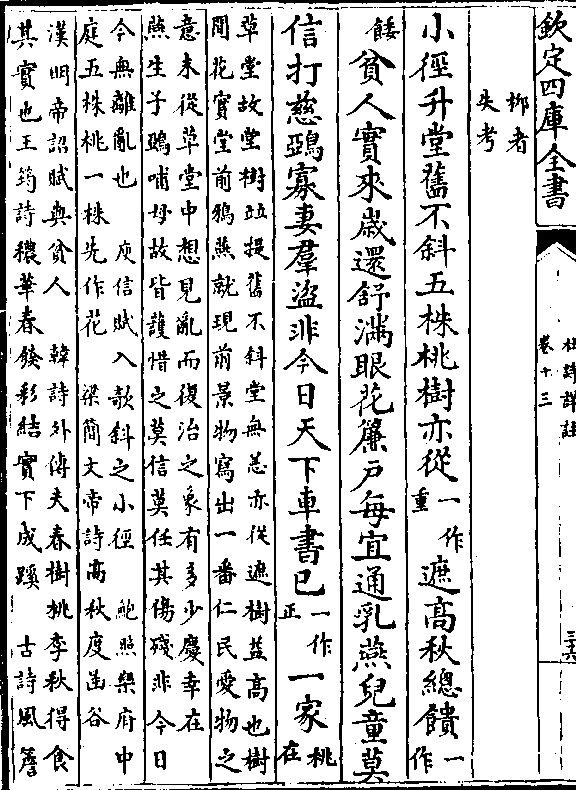 欽定四庫全書
杜詩詳註
卷十三
三六
柳者
失考
小徑升堂舊不斜五株桃樹亦從一作重遮高秋總饋一作
餧貧人實來歲還舒滿眼花簾戶每宜通乳燕兒童莫
信打慈鵶寡妻羣盜非今日天下車書已一作正一家桃在
草堂故堂樹竝提舊不斜堂無恙亦從遮樹益高也樹
間花實堂前鴉燕就現前景物寫出一番仁民愛物之
意末從草堂中想見亂而復治之象有多少慶幸在
燕生子鵶哺母故皆護惜之莫信莫任其傷殘非今日
今無離亂也 庾信賦入欹斜之小徑 鮑照樂府中
庭五株桃一株先作花 梁簡文帝詩高秋度函谷
漢明帝詔賦與貧人 韓詩外傳夫春樹桃李秋得食
其實也王筠詩穠華春發彩結實下成蹊 古詩風簷